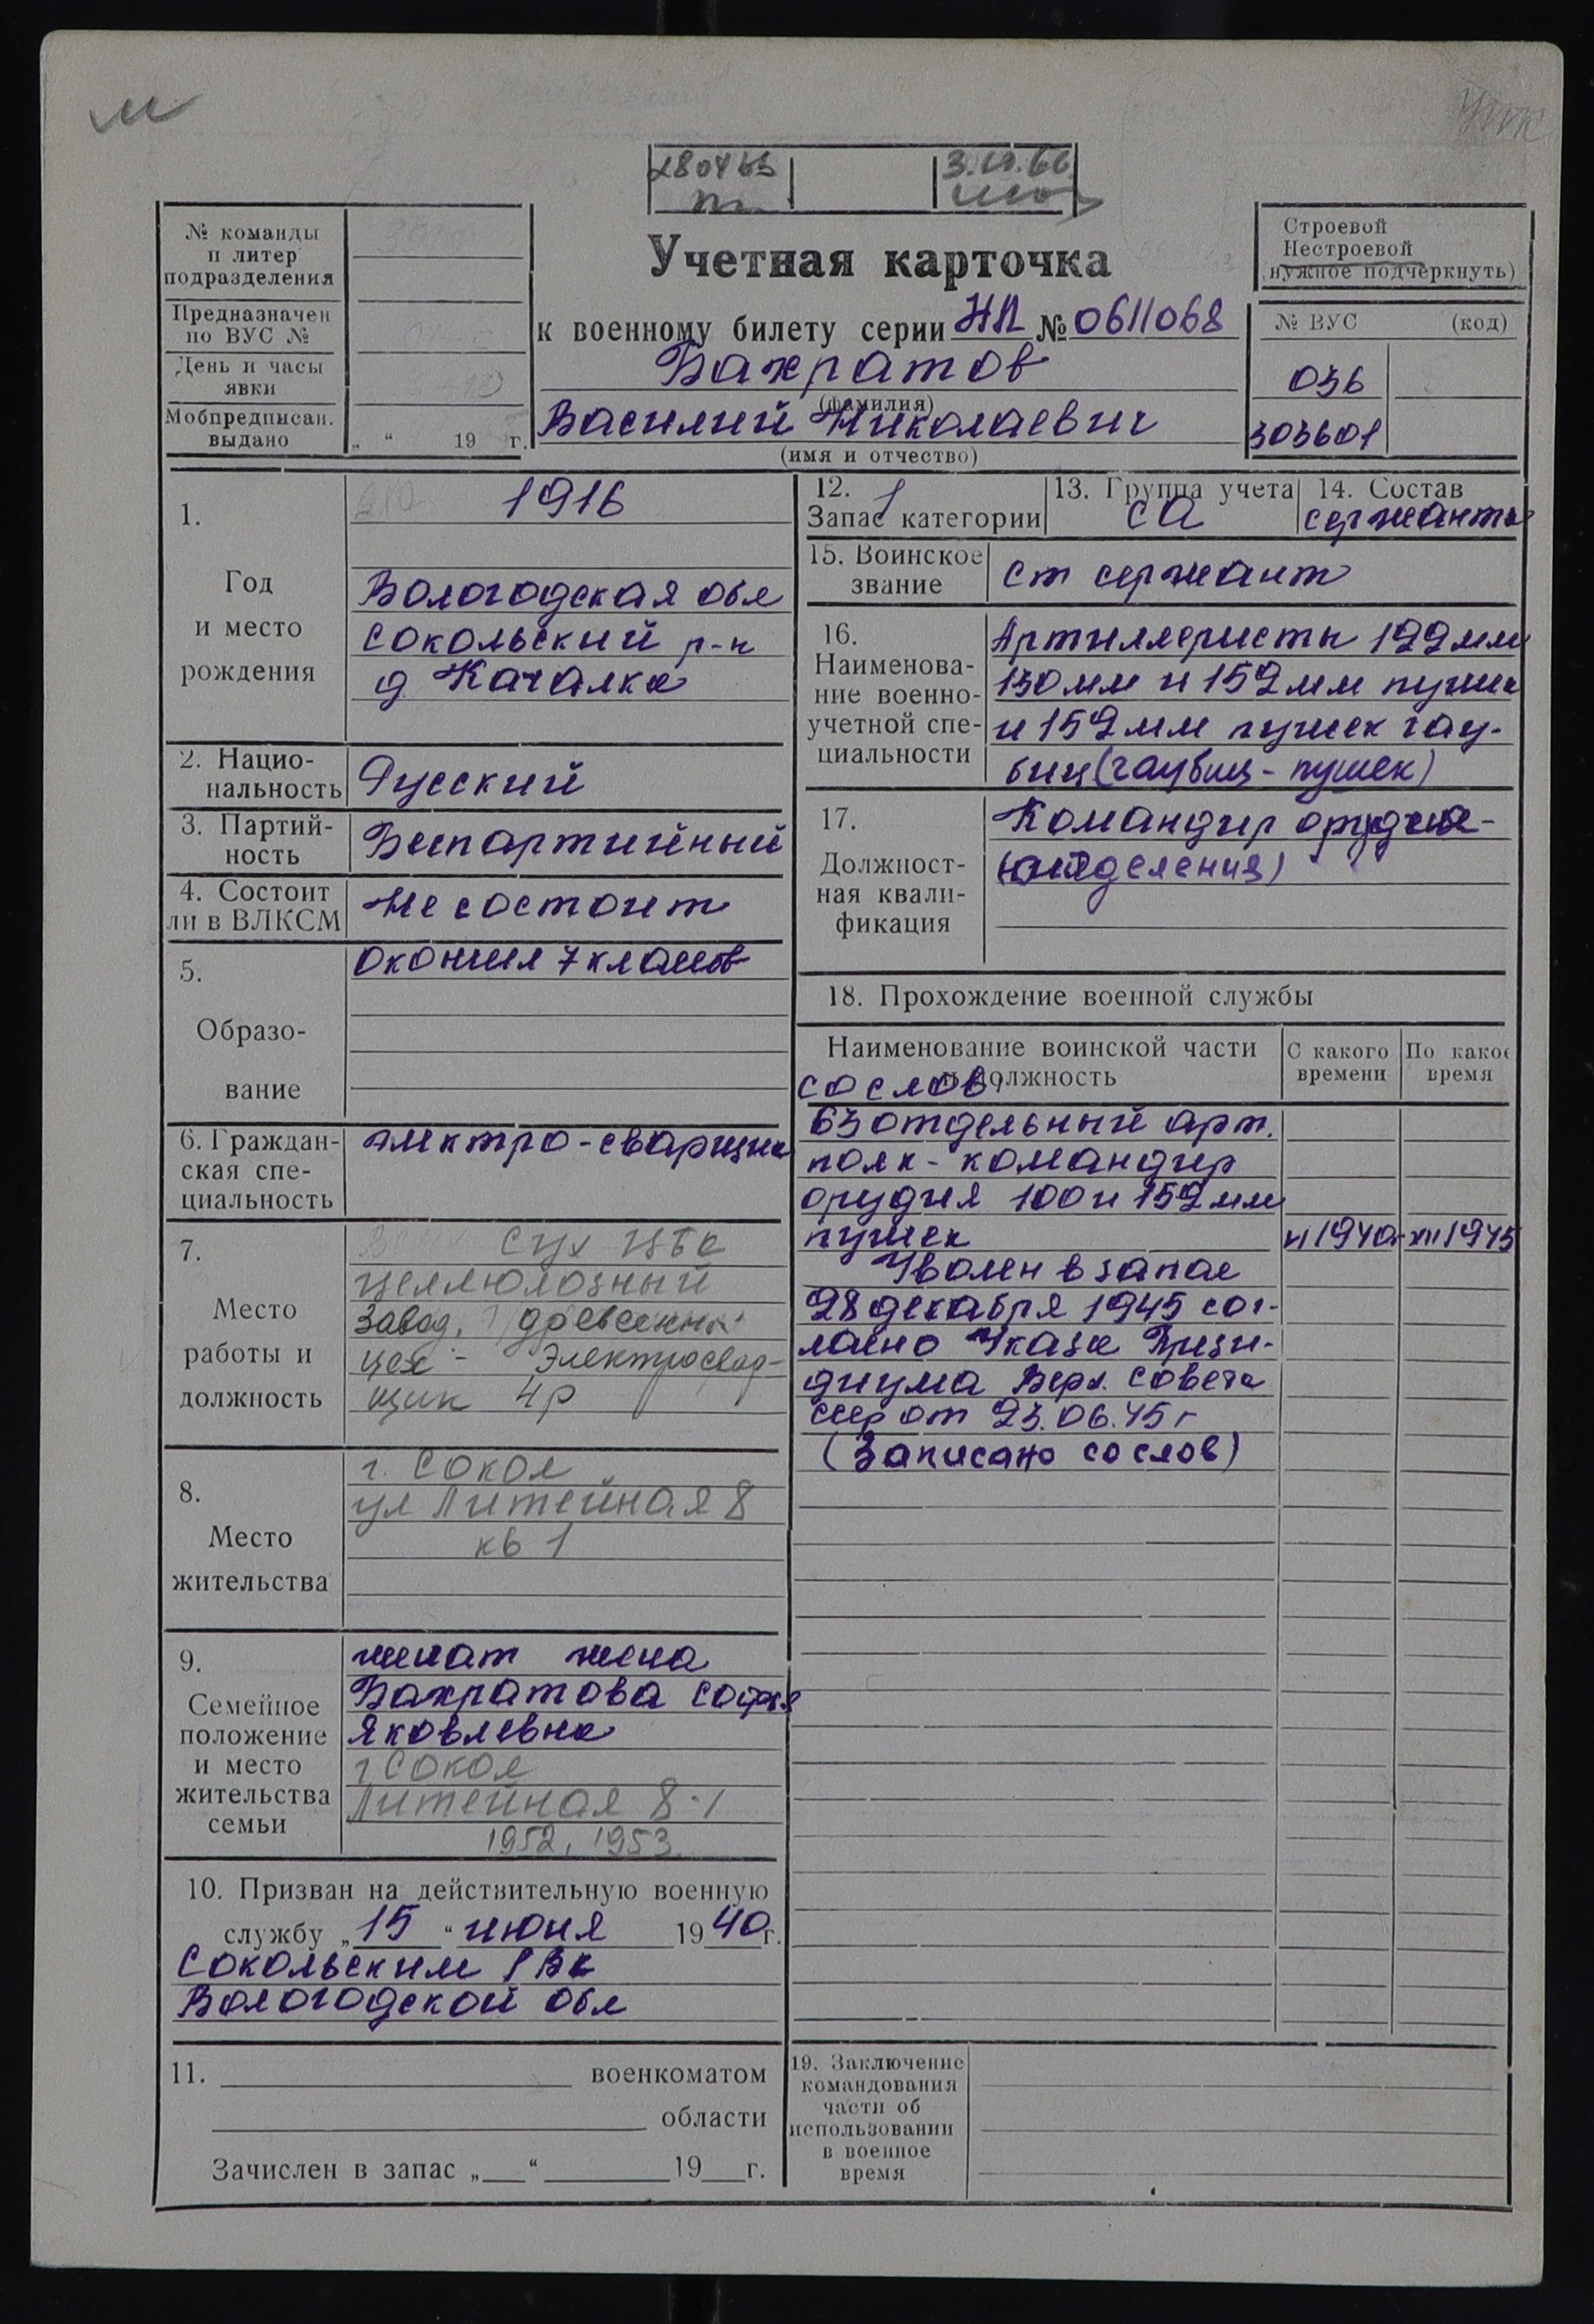 м
3.IX.66
№ команды
и литер
подразделения
Предназначен
по ВУС №
День и часы
явки
Мобпредписан.
выдано
„ “ 19 г.
Учетная карточка
к военному билету серии НЛ № 0611068
Бахратов
(фамилия)
Василий Николаевич
(имя и отчество)
Строевой
Нестроевой
(нужное подчеркнуть)
№ ВУС (код)
036
303601
1.
Год
и место
рождения
1916
Вологодская обл
Сокольский р-н
д Качалка
2. Нацио-
нальность
Русский
3. Партий-
ность
Беспартийный
4. Состоит
ли в ВЛКСМ
Не состоит
5.
Образо-
вание
окончил 7 классов
6. Граждан-
ская спе-
циальность
электро-сварщик
7.
Место
работы и
должность
Сух ЦБК
целлюлозный
завод, древесный
цех - Электросвар-
щик 4р
8.
Место
жительства
г. Сокол
ул Литейная 8
кв 1
9.
Семейное
положение
и место
жительства
семьи
женат жена
Бахратова Софья
Яковлевна
г Сокол
Литейная 8-1
1952, 1953
10. Призван на действительную военную
службу „15“ июня 1940г.
Сокольским РВК
Вологодской обл
11. военкоматом
области
Зачислен в запас „ “ 19 г.
12. 1
Запас категории
13. Группа учета
СА
14. Состав
сержанты
15. Воинское
звание
Ст сержант
16.
Наименова-
ние военно-
учетной спе-
циальности
Артиллеристы 122мм
130мм и 152мм пушек
и 152мм пушек гау-
биц (гаубиц-пушек)
17.
Должност-
ная квали-
фикация
Командир орудия-
(отделения)
18. Прохождение военной службы
Наименование воинской части
и должность
С какого
времени
По какое
время
со слов
63 отдельный арт.
полк - командир
орудия 100 и 152мм
пушек VI 1940г XII 1945
Уволен в запас
28 декабря 1945 сог-
ласно Указа Прези-
диума Верх. Совета
СССР от 23.06.45г
(Записано со слов)
19. Заключение
командования
части об
использовании
в военное
время